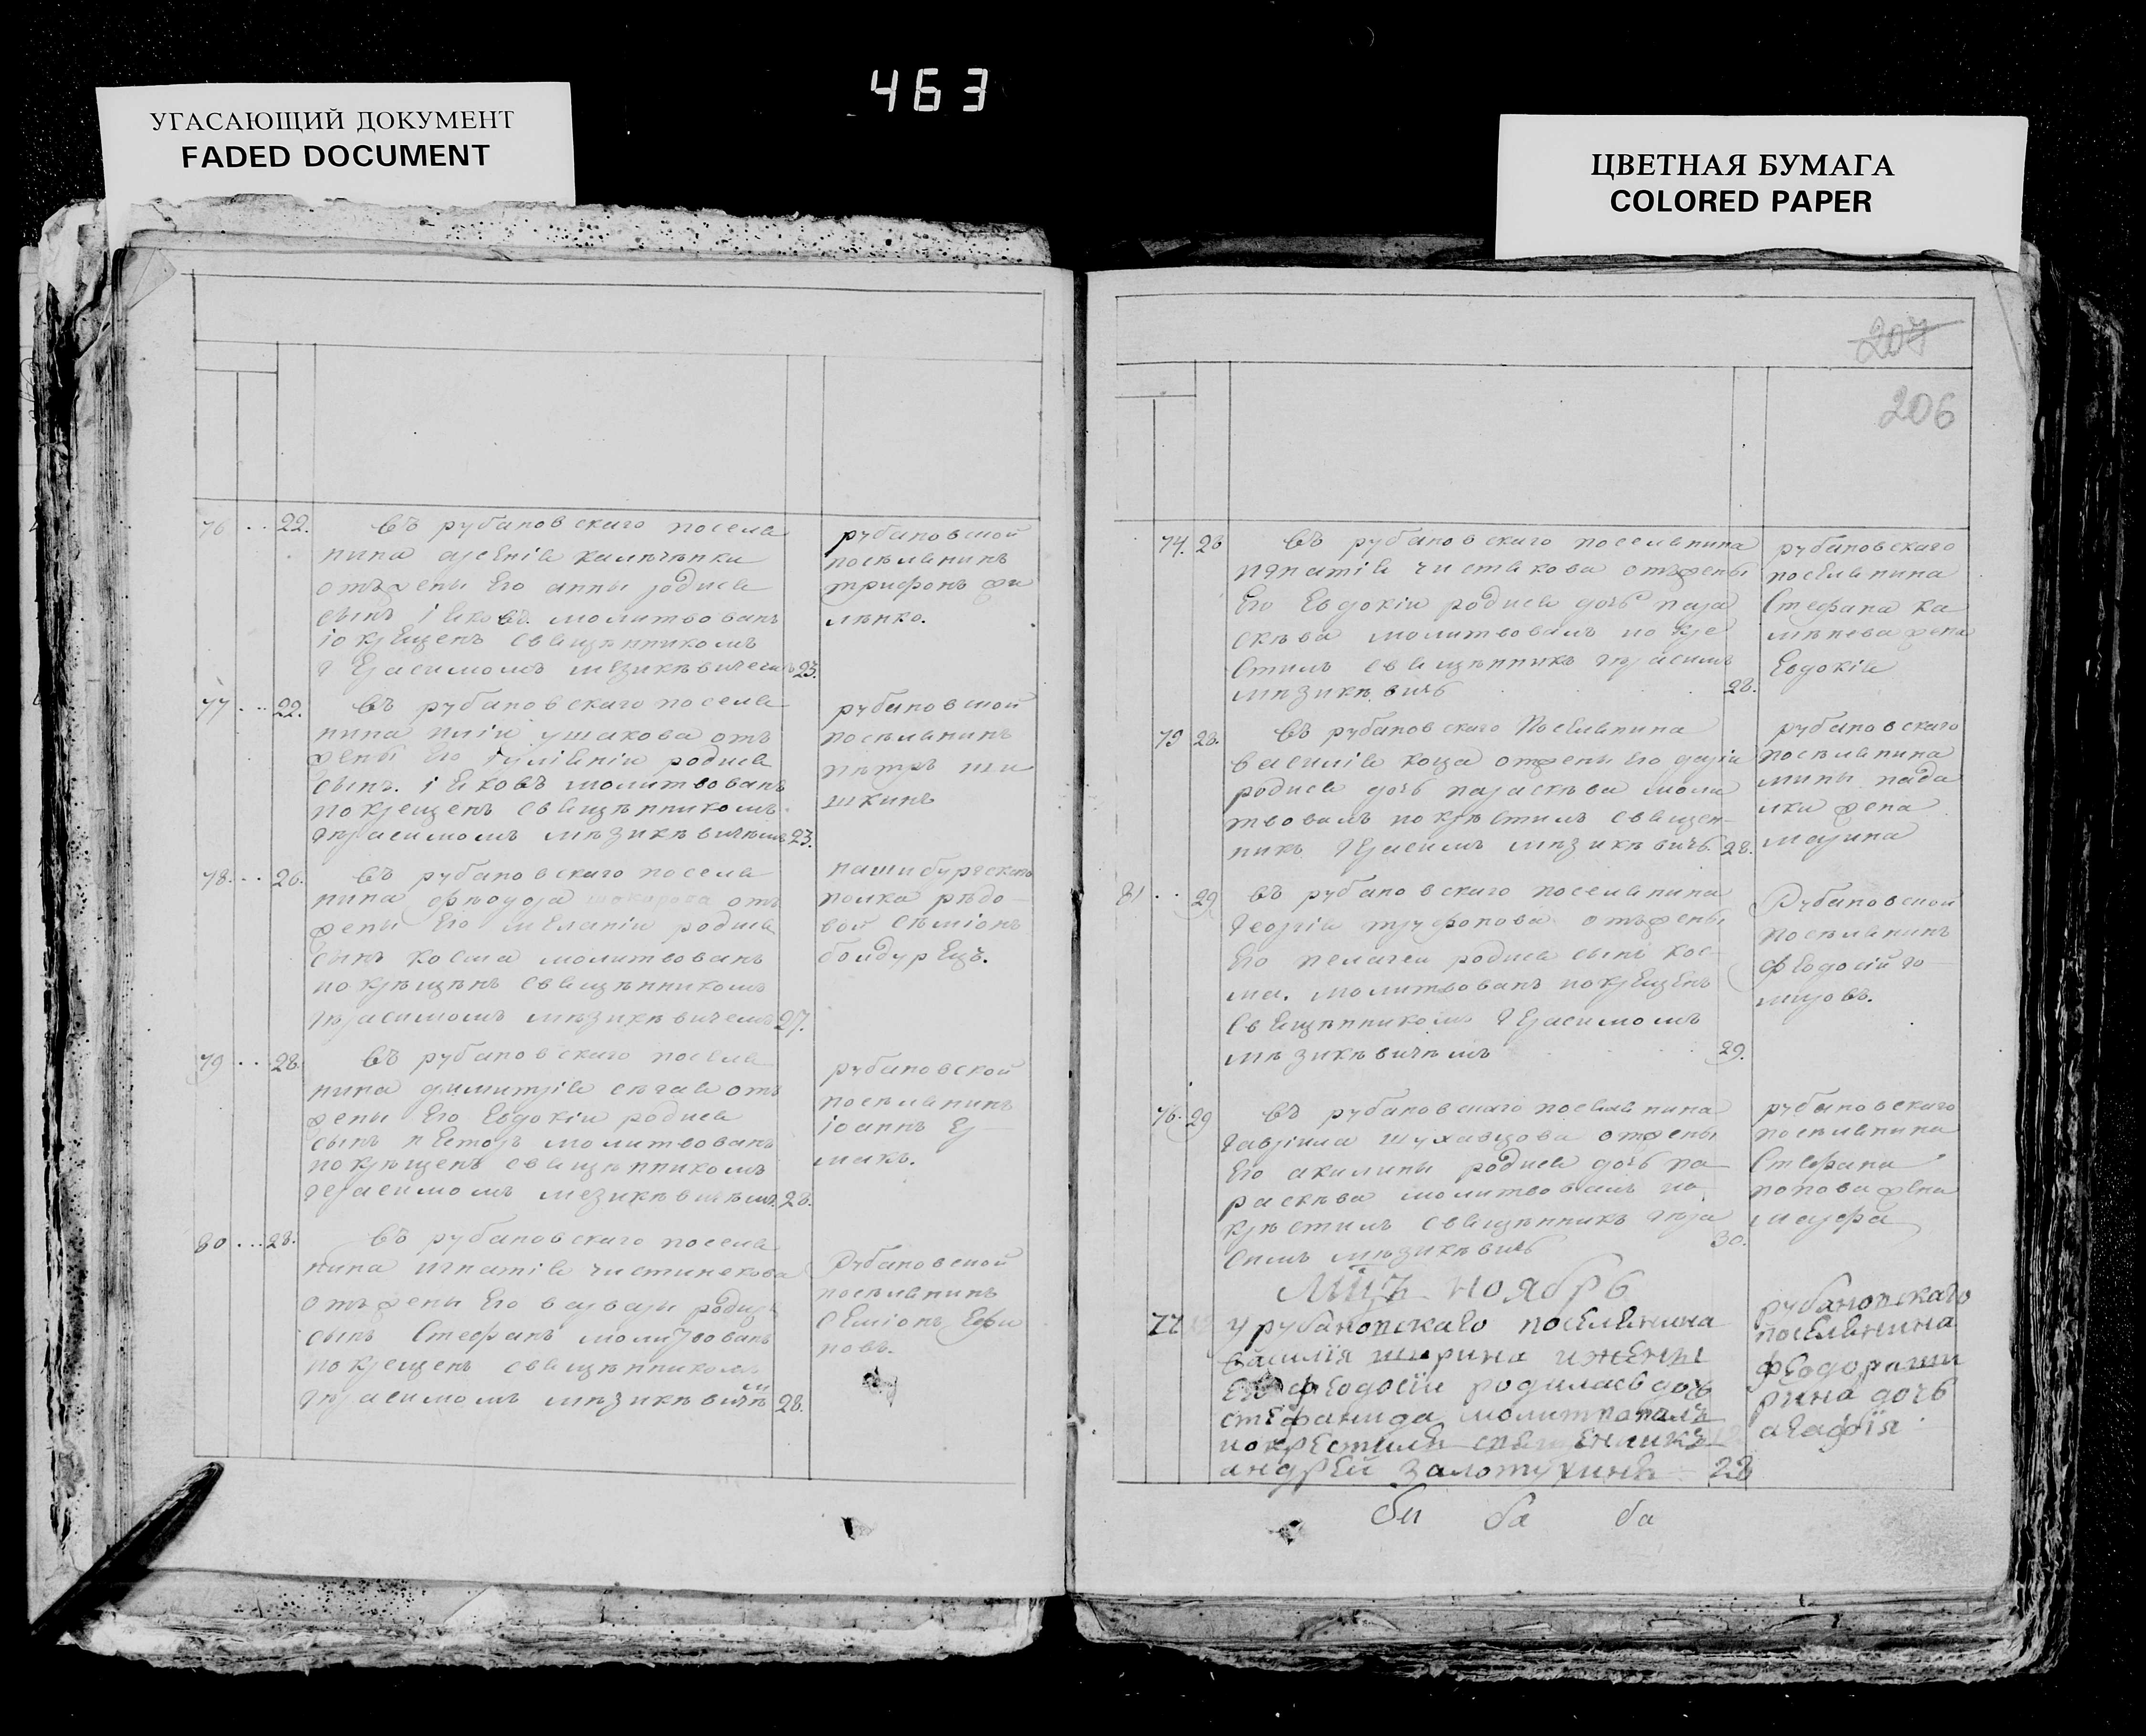 463
УГАСАЮЩИЙ ДОКУМЕНТ
FADED DOCUMENT
ЦВЕТНАЯ БУМАГА
COLORED PAPER
207
206
76 22. Въ рубановскаго посела
нина арсенія
отъ жены Его анны родися
сынъ іяковъ. молитвованъ
ікрещенъ священникомъ
23.
рубановской
поселянинъ
трифонъ фи
ленко.
77 22. Въ рубановскаго посела
нина иліи ушакова отъ
жены Его родися
сынъ. іяковъ молитвованъ
покрещенъ священникомъ
герасимомъ мезикевичемъ 23.
рубановской
поселянинъ
петръ ши
шкинъ
78. 26. Въ рубановскаго посела
нина феодора отъ
жены Его мелании родися
сынъ косма молитвованъ
покрещенъ священникомъ
герасимомъ мезикевичемъ 27.
полка рядо
вой семіонъ
болдурецъ.
79 28. Въ рубановскаго посела
нина димитрія отъ
жены Его Евдокіи родися
сынъ несторъ молитвованъ
покрещенъ священникомъ
герасимомъ мезикевичемъ. 28.
рубановской
поселянинъ
іоаннъ Ер
макъ.
80 28. Въ рубановскаго посела
нина игнатія
отъ жены Его варвары родися
сынъ Стефанъ молитвованъ
покрещенъ священникомъ
герасимомъ мезикевичемъ 28.
Рубановской
поселянинъ
Семіонъ Ефи
новъ.
74. 28 Въ рубановскаго поселянина
игнатія чистякова отъ жены
Его Евдокіи родися дочь пара
скева молитвовалъ покре
стилъ священникъ герасимъ
мезикевичь 28.
рубановскаго
поселянина
Стефана ка
менева жена
Евдокія
75 28. Въ рубановскаго Поселянина
василія коца отжены Его даріи
родися дочь параскева моли
твовалъ покрестилъ священ-
никъ Герасимъ мезикевичь. 28.
рубановскаго
поселянина
мины пада
лки жена
марина
81 29 Въ рубановскаго поселянина
Георгія труфонова отъ жены
Его пелагеи родися сынъ кос-
ма. молитвованъ покрещенъ
Священникомъ Герасимомъ
мезикевичемъ 29.
Рубановской
поселянинъ
феодосій го
мировъ.
76. 29 Въ рубановскаго поселянина
гавріила шухавцова отжены
Его акилины родися дочь па-
раскева молитвовалъ по
крестилъ священникъ гера
симъ мезикевичь 30.
рубановскаго
поселянина
Стефана
попова жена
марфа
Мцъ ноябрь
77 У рубановскаго поселянина
василія ширина и жены
Его феодосіи родилась дочь
стефанида молитвовалъ
покрестилъ священникъ
андрей золотухинъ 22
рубановскаго
поселянина
феодора ши
рина дочь
агафія
ба ба